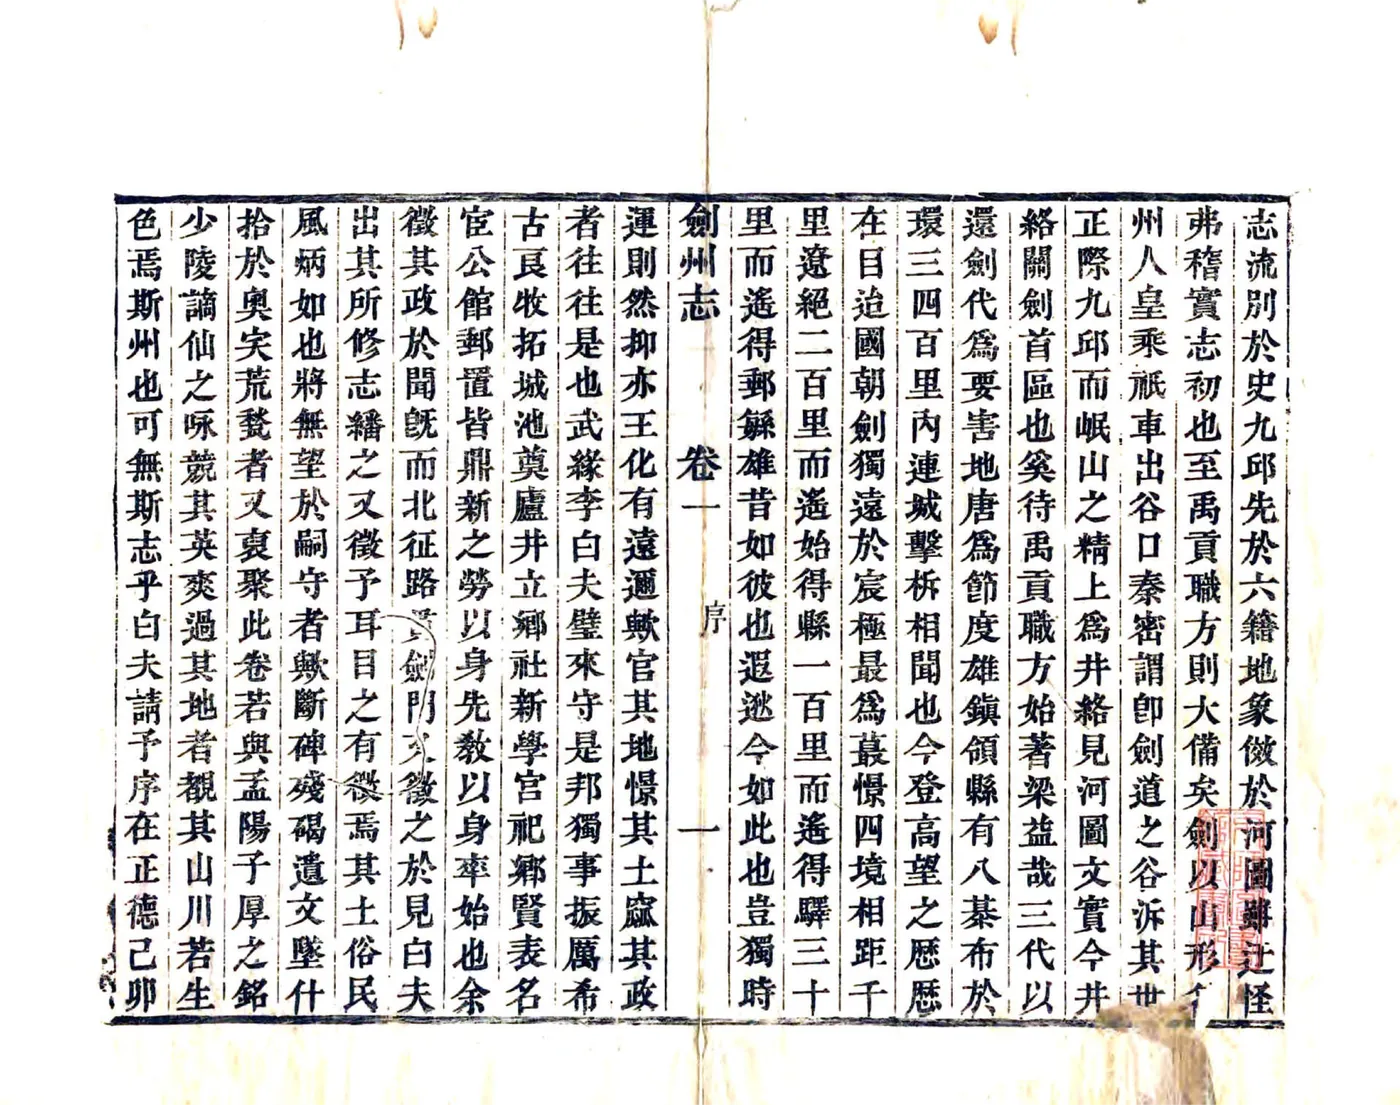 志流別於史九邱先於六籍地象倣於河圖雖迂怪
弗稽實志初也至禹貢職方則大備矣劍以山形
州人皇乘祇車出谷口秦密謂卽劍道之谷泝其世
正際九邱而岷山之精上爲井絡見河圖文實今井
絡關劍首區也奚待禹貢職方始著梁益哉三代以
還劍代爲要害地唐爲節度雄鎭領縣有八棊布於
環三四百里內連城擊柝相聞也今登高望之歷歷
在目迨國朝劍獨遠於宸極最爲蕞憬四境相距千
里遼絕二百里而遙始得縣一百里而遙得驛三十
里而遙得郵緜雄昔如彼也遐逖今如此也豈獨時
劍州志 卷一 序 一
運則然抑亦王化有遠邇歟官其地憬其土窳其政
者往往是也武緣李白夫璧來守是邦獨事振厲希
古良牧拓城池奠廬井立鄉社新學宮祀鄉賢表名
宦公館郵置皆鼎新之勞以身先敎以身率始也余
徵其政於聞旣而北征路貫劍門又徵之於見白夫
出其所修志繙之又徵予耳目之有徵焉其土俗民
風炳如也將無望於嗣守者歟斷碑殘碣遺文墜什
拾於奧穾荒甃者又裒聚此卷若與孟陽子厚之銘
少陵謫仙之咏競其英爽過其地者覩其山川若生
色焉斯州也可無斯志乎白夫請予序在正德己卯